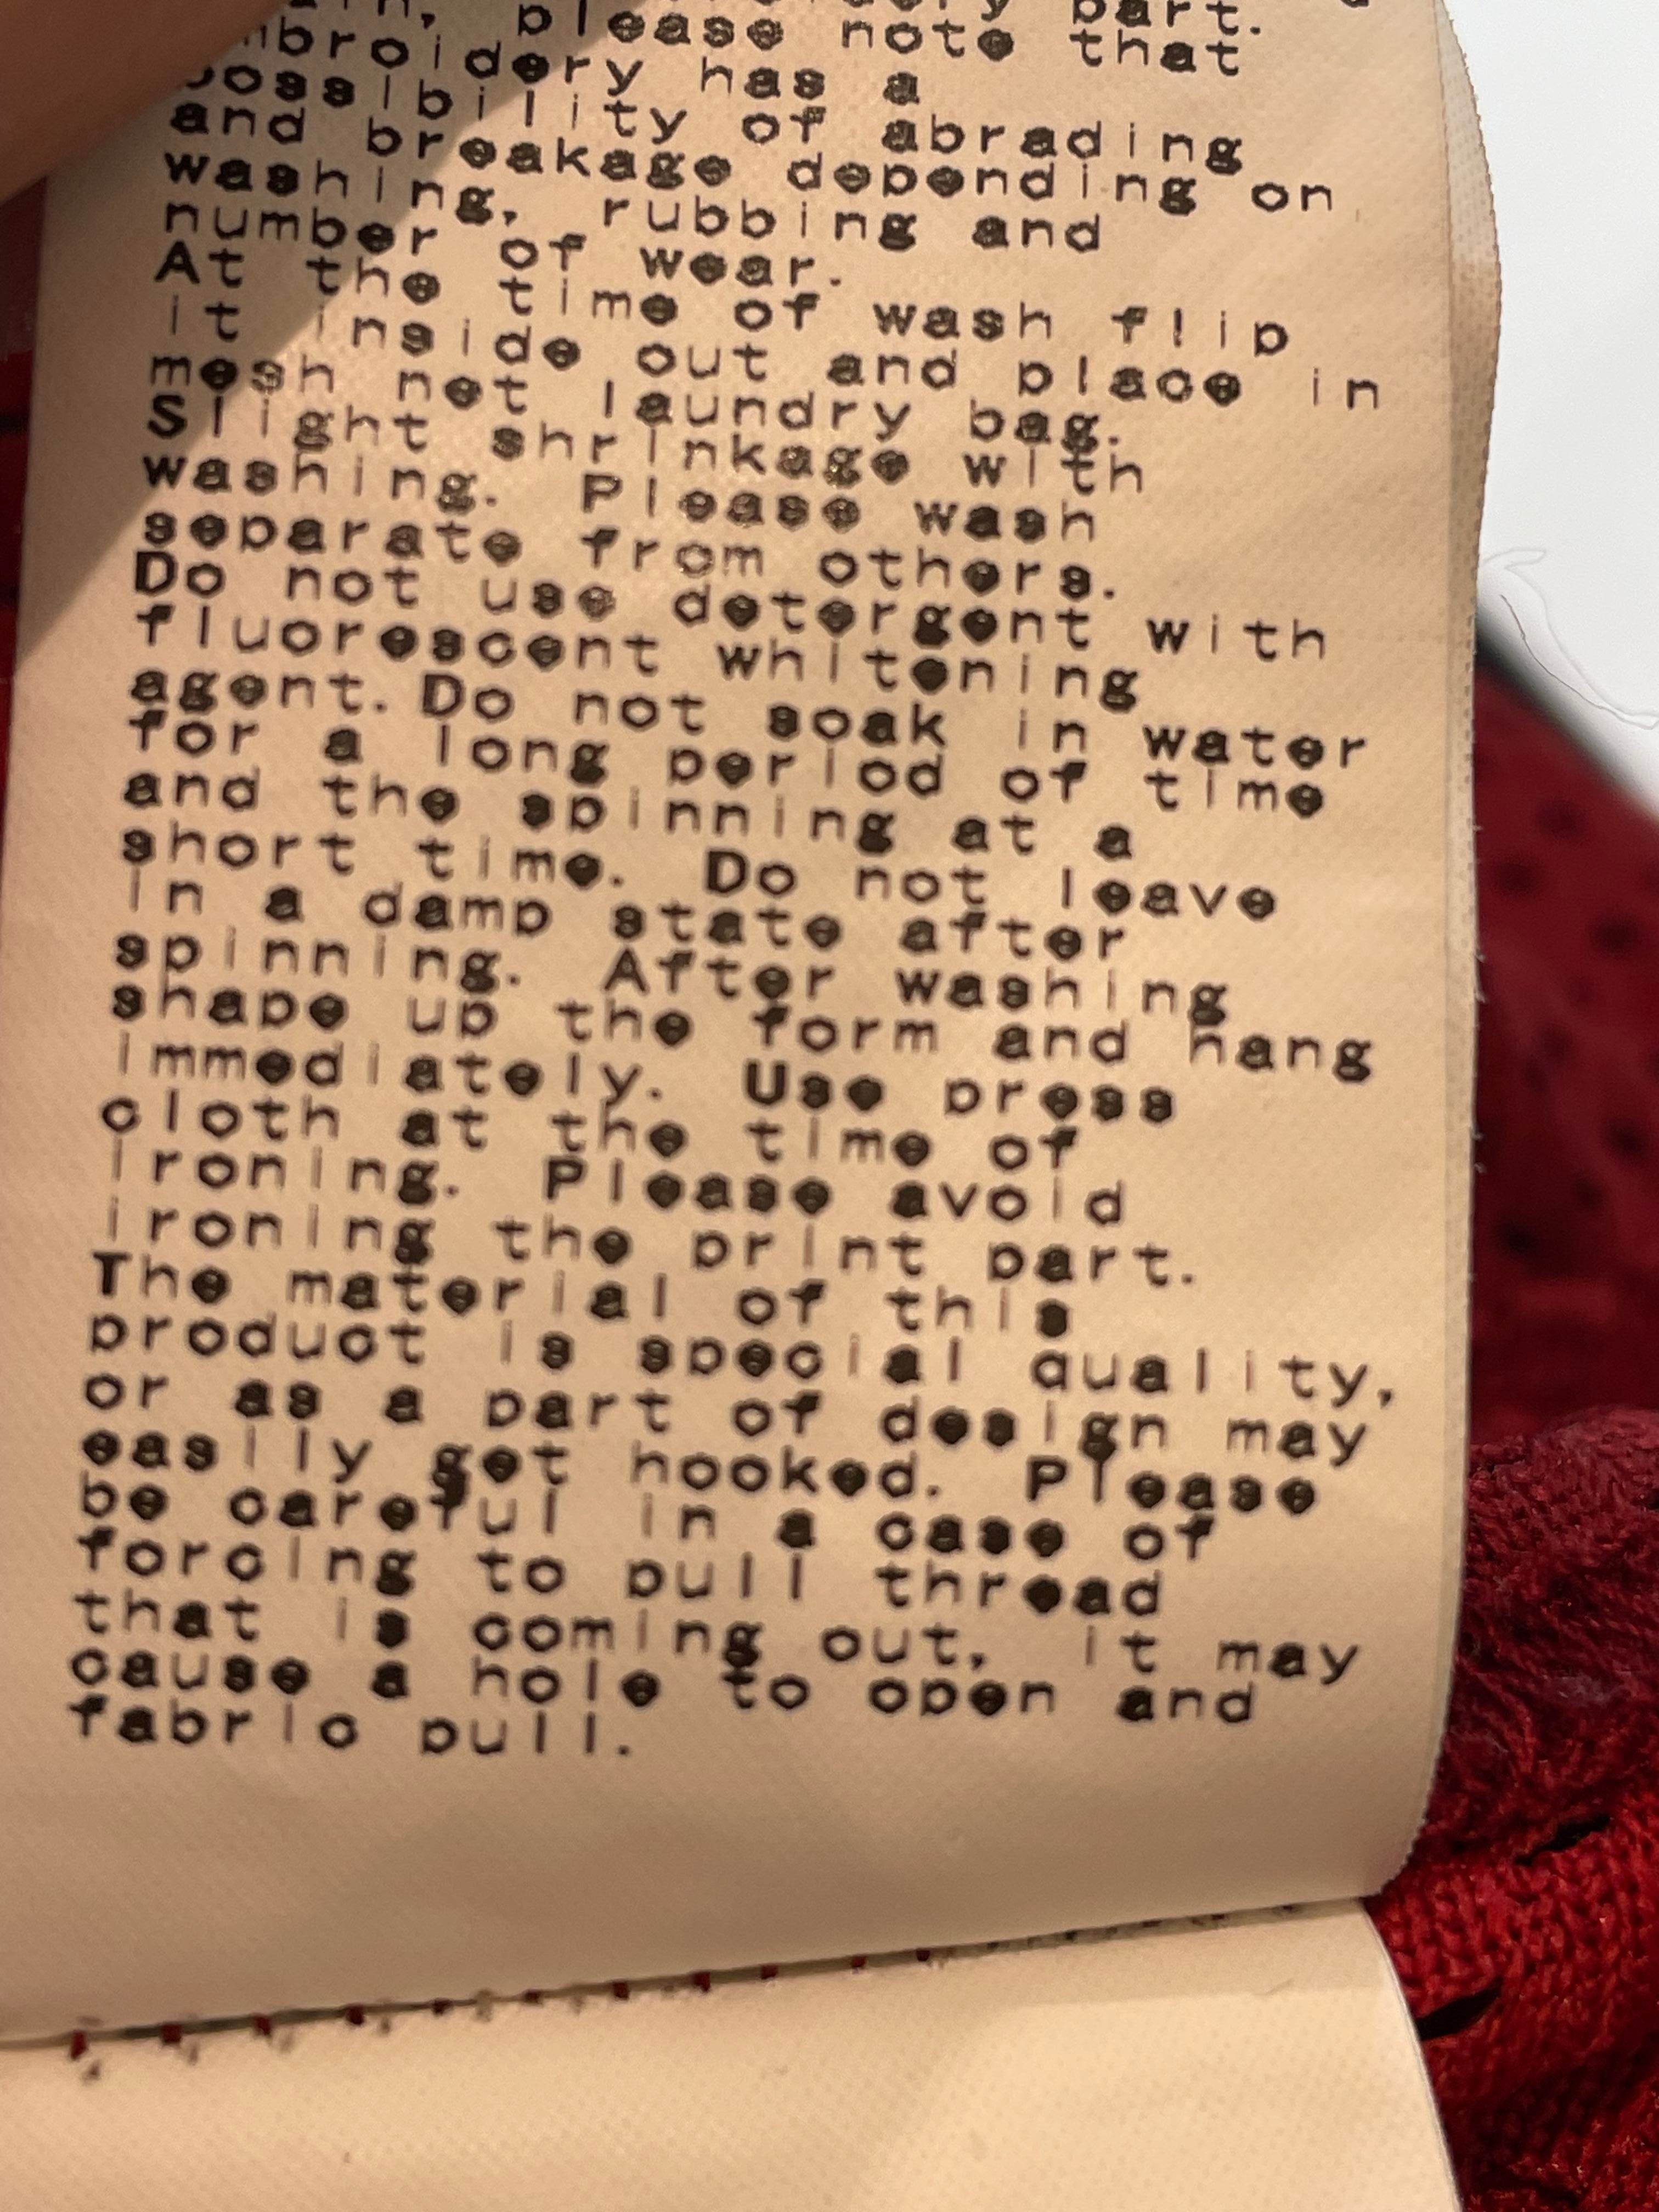 part.
please note that
broidery has a
possibility of abrading
and breakage depending on
washing, rubbing and
number of wear.
At the time of wash flip
it inside out and place in
mesh net laundry bag.
Slight shrinkage with
washing. Please wash
separate from others.
Do not use detergent with
fluorescent whitening
agent. Do not soak in water
for a long period of time
and the spinning at a
short time. Do not leave
in a damp state after
spinning. After washing
shape up the form and hang
immediately. Use press
cloth at the time of
ironing. Please avoid
ironing the print part.
The material of this
product is special quality,
or as a part of design may
easily get hooked. Please
be careful in a case of
forcing to pull thread
that is coming out, it may
cause a hole to open and
fabric pull.